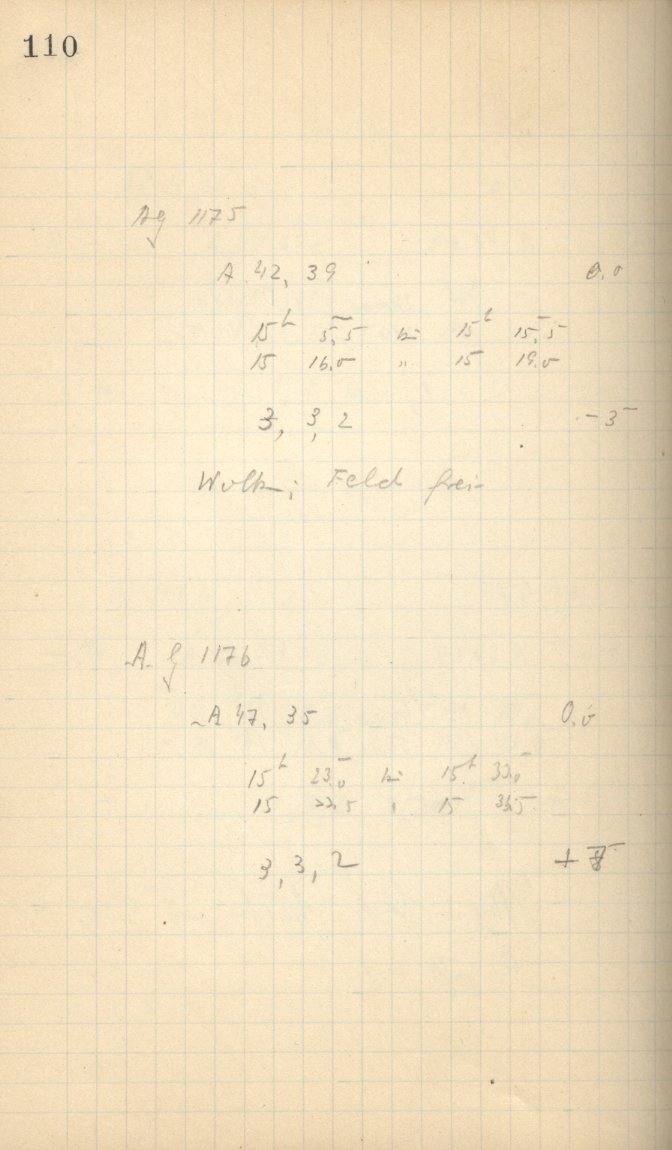 110
Ag 1175
A 42, 39 0.0
15h 5,5 bis 15h 15,5
15 16.0 " 15 19.0
3, 3, 2 -3
Wolk; Feld frei
A.G 1176
A 47, 35 0.0
15h 23.0 bis 15h 33.0
15 15
3, 3, 2